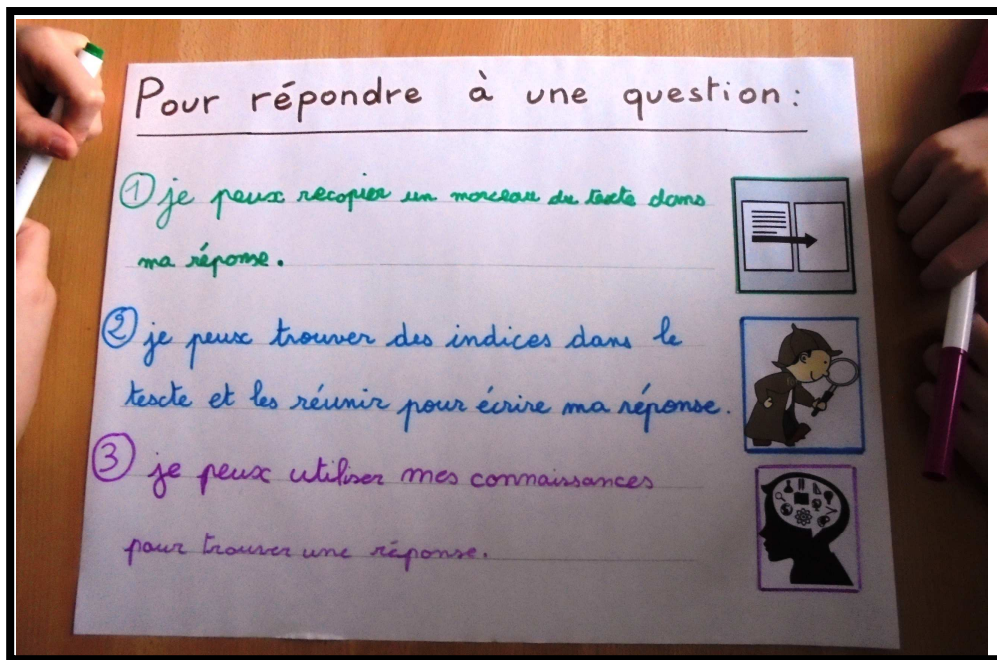 Pour répondre à une question :
① je peux recopier un morceau du texte dans
ma réponse.
② je peux trouver des indices dans le
texte et les réunir pour écrire ma réponse.
③ je peux utiliser mes connaissances
pour trouver une réponse.